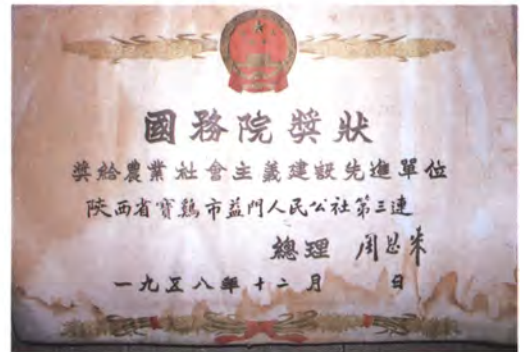 國務院獎狀
獎給農業社會主義建設先進單位
陝西省寶鷄市益門人民公社第三連
總理 周恩来
一九五八年十二月 日